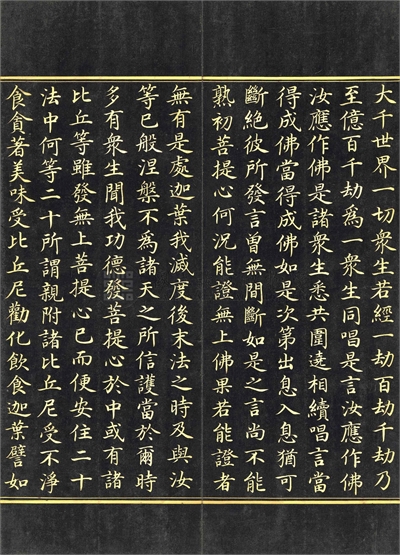 大千世界一切眾生若經一劫百劫千劫乃
至億百千劫為一眾生同唱是言汝應作佛
汝應作佛是諸眾生悉共圍遶相續唱言當
得成佛當得成佛如是次第出息入息猶可
斷絕彼所發言曾無間斷如是之言尚不能
熟初菩提心何況能證無上佛果若能證者
無有是處迦葉我滅度後末法之時及與汝
等已般涅槃不為諸天之所信護當於爾時
多有眾生聞我功德發菩提心於中或有諸
比丘等雖發無上菩提心已而便安住二十
法中何等二十所謂親附諸比丘尼受不淨
食貪著美味受比丘尼勸化飲食迦葉譬如